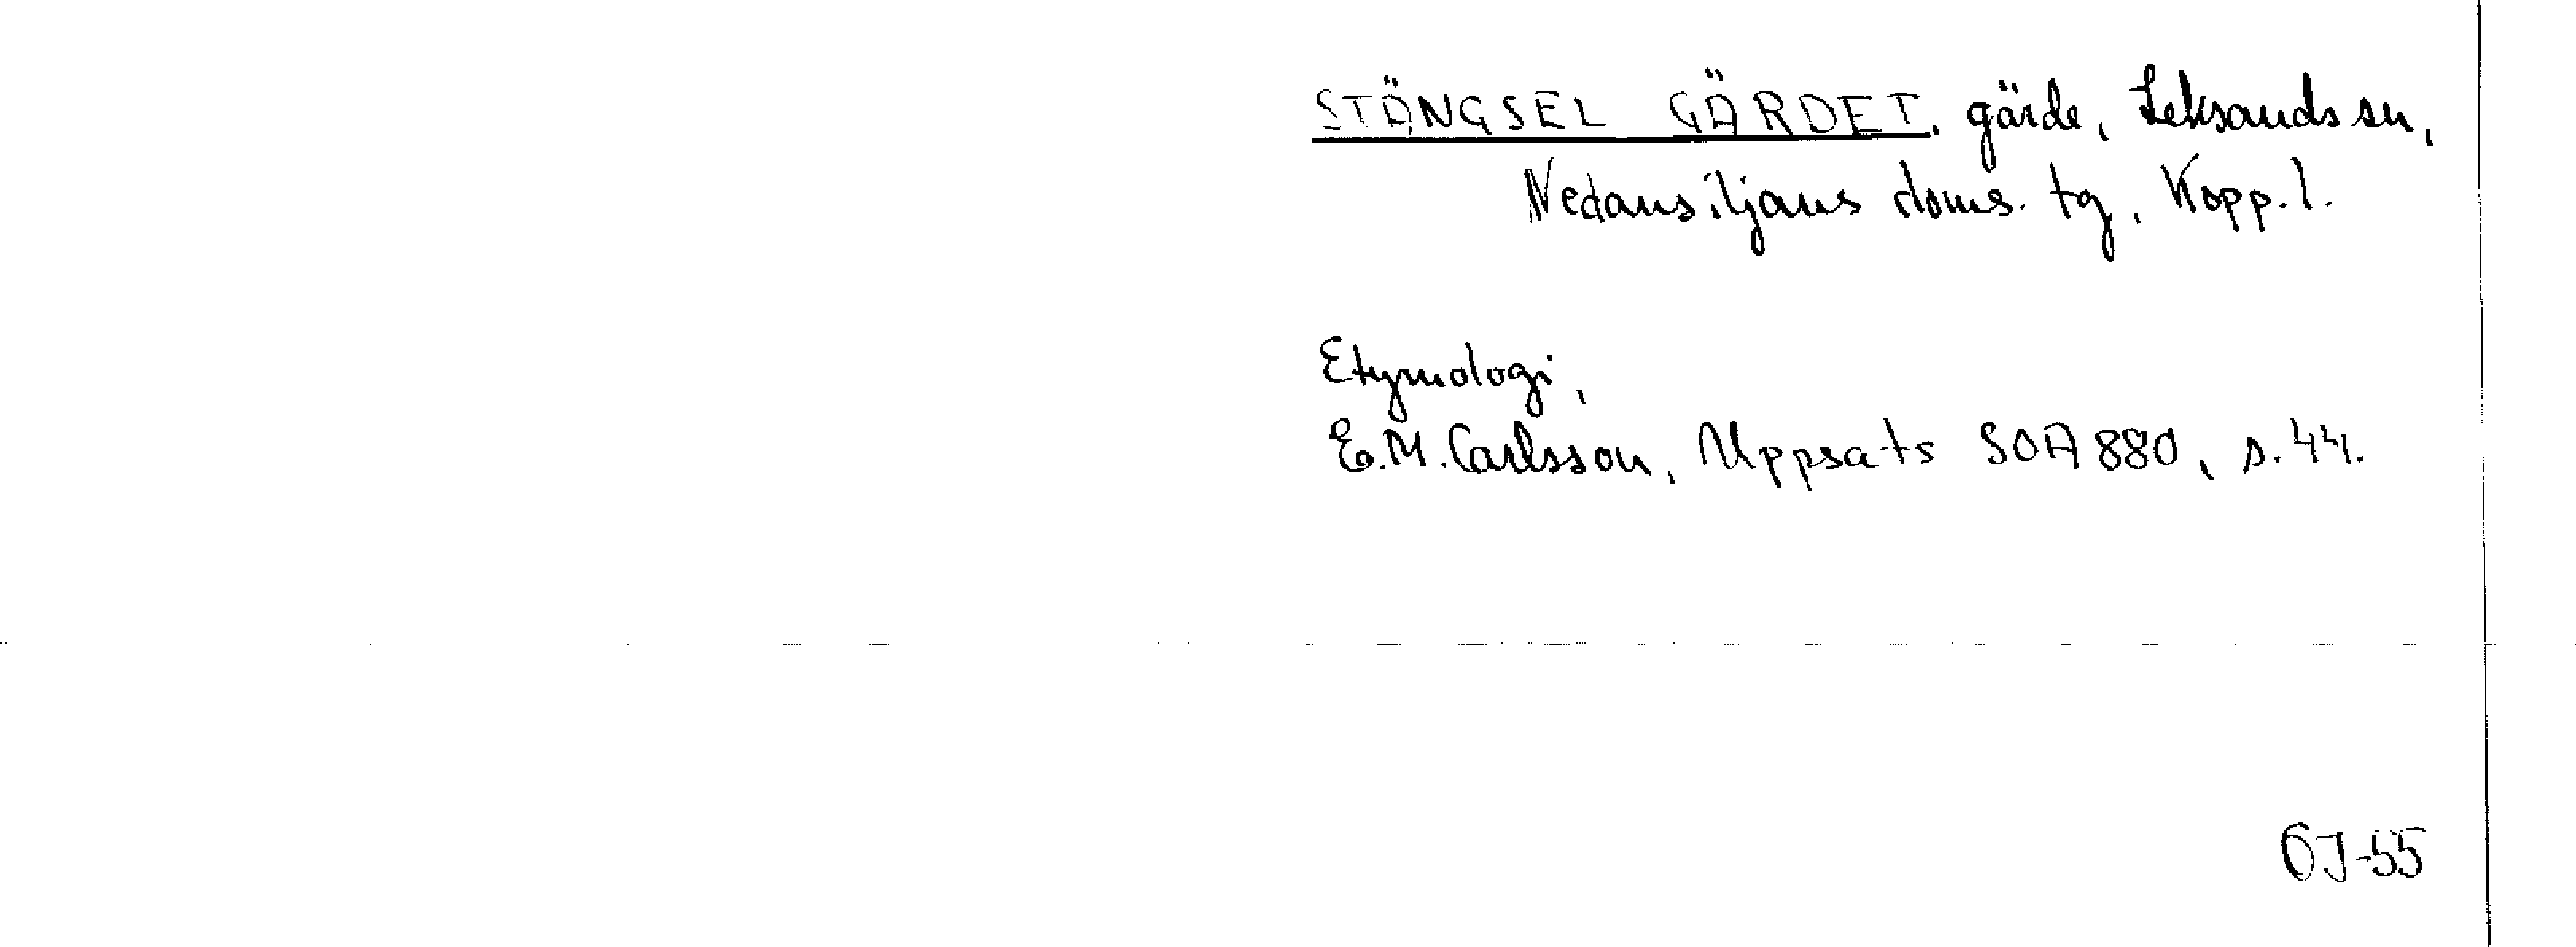 STÄNGSEL GÄRDET, gärde, Leksands sn,
Nedansiljans doms. tg, Kopp. l.
Etymologi,
E.M. Carlsson, Uppsats SOA 880, s. 44.
ÖJ-55